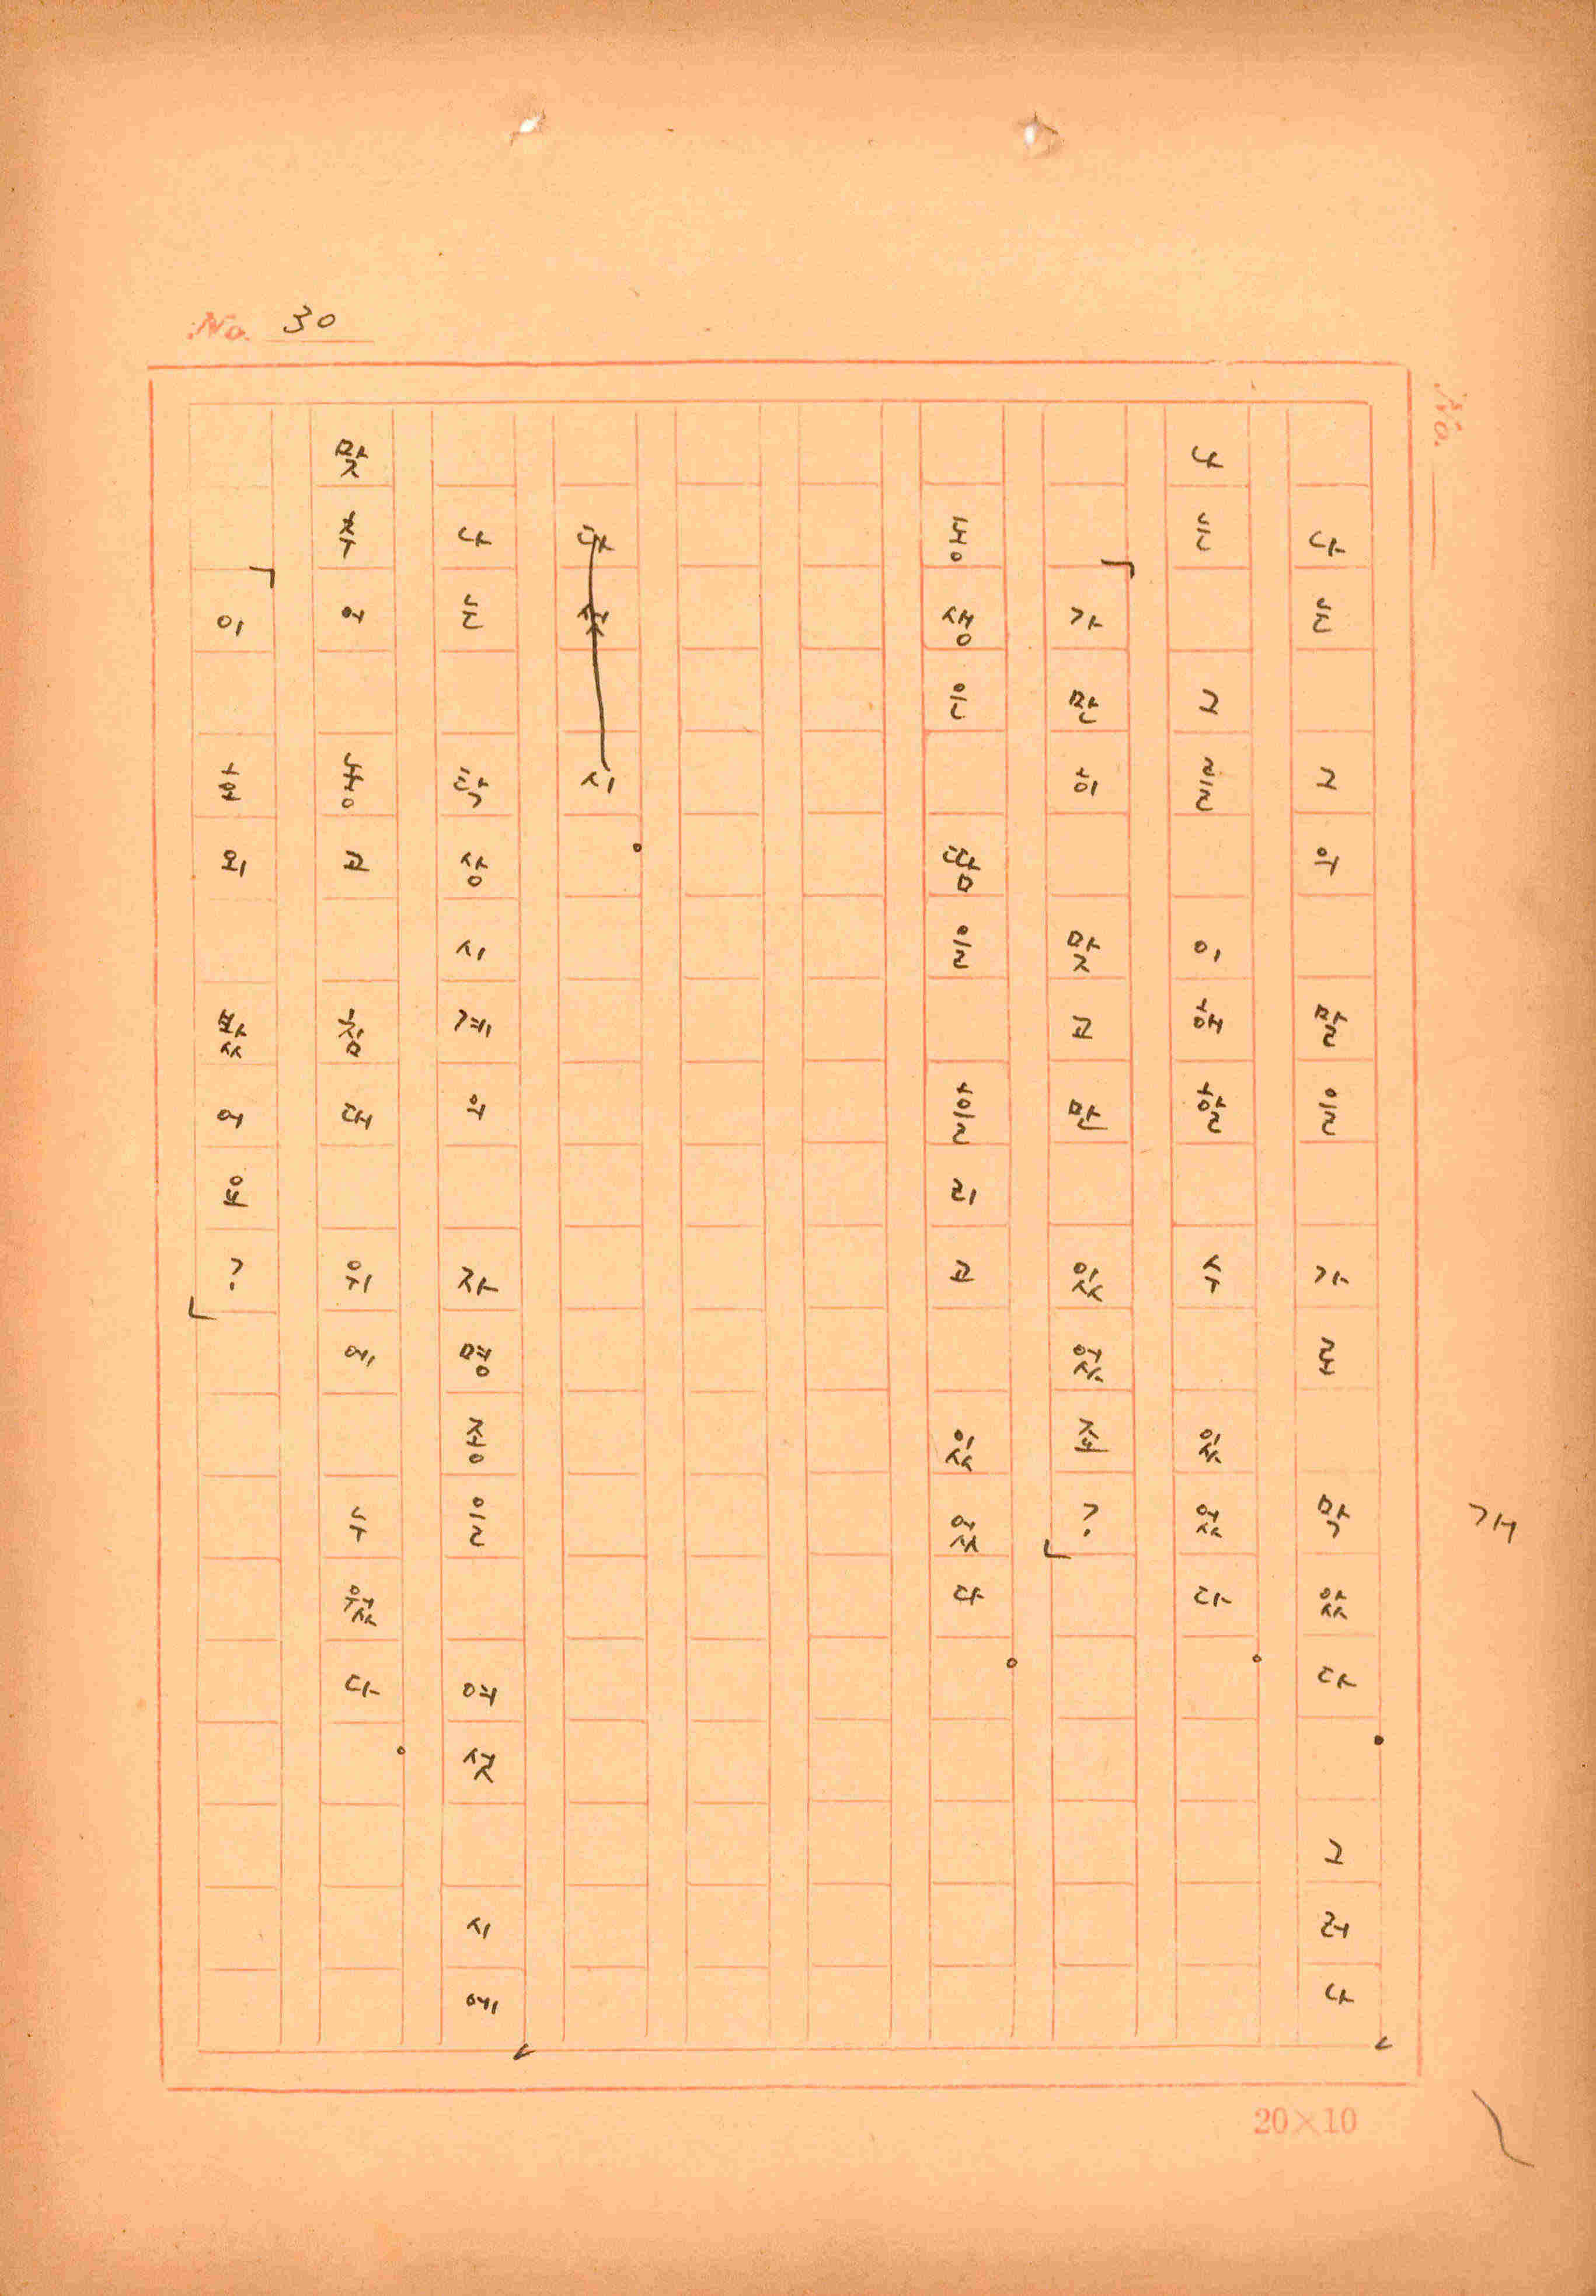 No. 30
No.
나는 그의 말을 가로 막았다. 그러나
나는 그를 이해할 수 있었다.
「가만히 맞고만 있었죠?」
동생은 땀을 흘리고 있었다.
다섯 시.
나는 탁상시계의 자명종을 여섯 시에
맞추어 놓고 침대 위에 누웠다.
「이 호외 봤어요?」
개
20×10